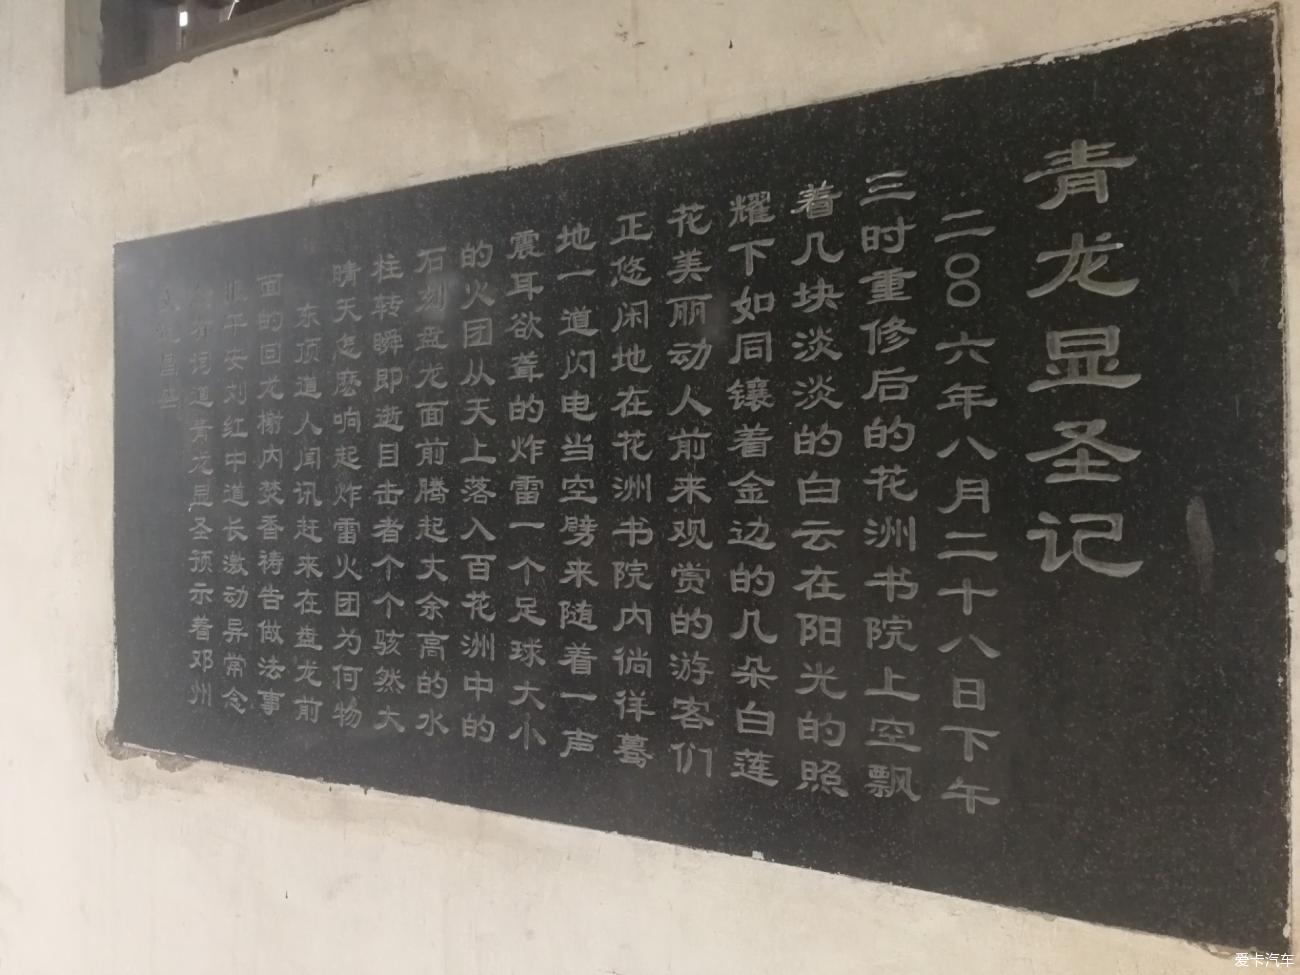 青龙显圣记
二〇〇六年八月二十八日下午
三时重修后的花洲书院上空飘
着几块淡淡的白云在阳光的照
耀下如同镶着金边的几朵白莲
花美丽动人前来观赏的游客们
正悠闲地在花洲书院内徜徉蓦
地一道闪电当空劈来随着一声
震耳欲聋的炸雷一个足球大小
的火团从天上落入百花洲中的
石刻盘龙面前腾起丈余高的水
柱转瞬即逝目击者个个骇然大
晴天怎麽响起炸雷火团为何物
东顶道人闻讯赶来在盘龙前
面的回龙榭内焚香祷告做法事
平安刘红中道长激动异常念
词道青龙显圣预示着邓州
昌盛
爱卡汽车